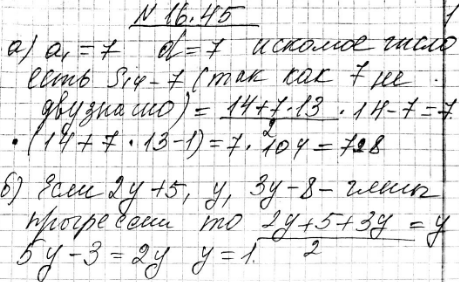 N 16.45
1
а) a₁ = 7 d = 7 искомое число
есть S₁₄ - 7 (так как 7 не
двузначно) = (14+7·13)/2 · 14 - 7 = 7
· (14 + 7 · 13 - 1) = 7 · 104 = 728
б) Если 2y + 5, y, 3y - 8 - члены
прогрессии то (2y + 5 + 3y)/2 = y
5y - 3 = 2y y = 1.